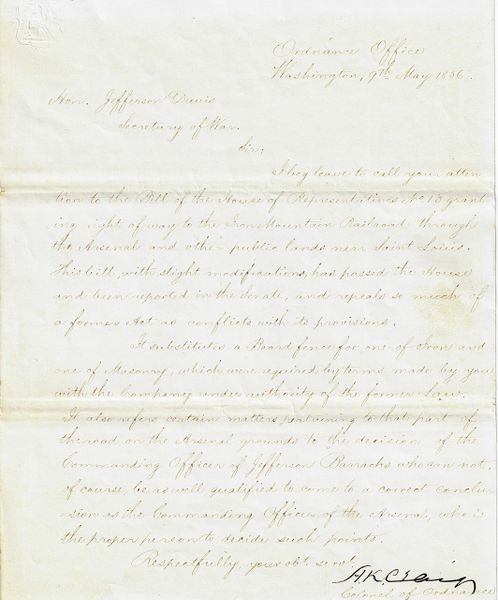 Ordnance Office
Washington, 9th May 1856.
Hon. Jefferson Davis
Secretary of War.
Sir:
I beg leave to call your atten
tion to the Bill of the House of Representatives No 13 grant
ing right of way to the Iron Mountain Railroad through
the Arsenal and other public lands near Saint Louis.
This bill, with slight modifications, has passed the House
and been reported in the Senate, and repeals so much of
a former Act as conflicts with its provisions.
It substitutes a Board fence for one of Iron and
one of Masonry, which were required by terms made by you
with the Company under authority of the former Law.
It also refers certain matters pertaining to that part of
the road on the Arsenal grounds to the decision of the
Commanding Officer of Jefferson Barracks who can not,
of course, be as well qualified to come to a correct conclu
sion as the Commanding Officer of the Arsenal, who is
the proper person to decide such points.
Respectfully, your obt. servt.
H K Craig
Colonel of Ordnance